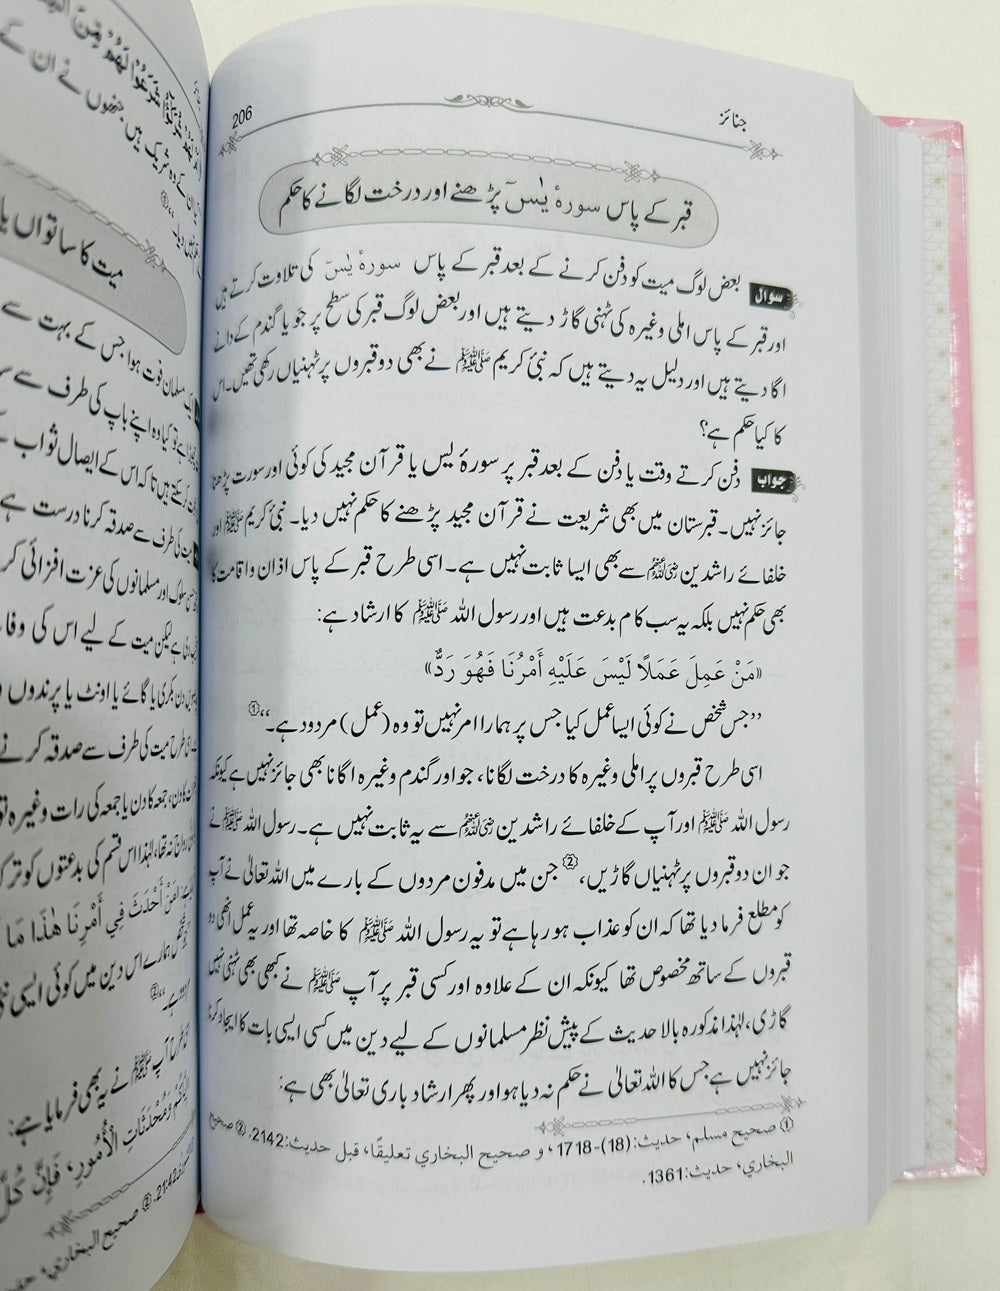 جنائز
206
قبر کے پاس سورۂ یٰسٓ پڑھنے اور درخت لگانے کا حکم
سوال بعض لوگ میت کو دفن کرنے کے بعد قبر کے پاس سورۂ یٰسٓ کی تلاوت کرتے ہیں
اور قبر کے پاس املی وغیرہ کی ٹہنی گاڑ دیتے ہیں اور بعض لوگ قبر کی سطح پر جو یا گندم کے دانے
اگا دیتے ہیں اور دلیل یہ دیتے ہیں کہ نبئ کریم ﷺ نے بھی دو قبروں پر ٹہنیاں رکھی تھیں۔ اس
کا کیا حکم ہے؟
جواب دفن کرتے وقت یا دفن کے بعد قبر پر سورۂ یٰس یا قرآن مجید کی کوئی اور سورت پڑھنا
جائز نہیں۔ قبرستان میں بھی شریعت نے قرآن مجید پڑھنے کا حکم نہیں دیا۔ نبئ کریم ﷺ اور
خلفائے راشدین رضی اللہ عنہم سے بھی ایسا ثابت نہیں ہے۔ اسی طرح قبر کے پاس اذان و اقامت کا
بھی حکم نہیں بلکہ یہ سب کام بدعت ہیں اور رسول اللہ ﷺ کا ارشاد ہے:
«مَنْ عَمِلَ عَمَلًا لَيْسَ عَلَيْهِ أَمْرُنَا فَهُوَ رَدٌّ»
’’جس شخص نے کوئی ایسا عمل کیا جس پر ہمارا امر نہیں تو وہ (عمل) مردود ہے۔‘‘①
اسی طرح قبروں پر املی وغیرہ کا درخت لگانا، جو اور گندم وغیرہ اگانا بھی جائز نہیں ہے کیونکہ
رسول اللہ ﷺ اور آپ کے خلفائے راشدین رضی اللہ عنہم سے یہ ثابت نہیں ہے۔ رسول اللہ ﷺ نے
جو ان دو قبروں پر ٹہنیاں گاڑیں،② جن میں مدفون مردوں کے بارے میں اللہ تعالیٰ نے آپ
کو مطلع فرما دیا تھا کہ ان کو عذاب ہو رہا ہے تو یہ رسول اللہ ﷺ کا خاصہ تھا اور یہ عمل انھی دو
قبروں کے ساتھ مخصوص تھا کیونکہ ان کے علاوہ اور کسی قبر پر آپ ﷺ نے کبھی بھی ٹہنی نہیں
گاڑی، لہٰذا مذکورہ بالا حدیث کے پیش نظر مسلمانوں کے لیے دین میں کسی ایسی بات کا ایجاد کرنا
جائز نہیں ہے جس کا اللہ تعالیٰ نے حکم نہ دیا ہو اور پھر ارشاد باری تعالیٰ بھی ہے:
① صحيح مسلم، حديث: (18)-1718، و صحيح البخاري تعليقًا، قبل حديث: 2142. ② صحيح
البخاري، حديث: 1361.
میت کا ساتواں یا
مسلمان فوت ہوا جس کے بہت سے
ہے تو کیا وہ اپنے باپ کی طرف سے
ہیں تاکہ اس کے ایصال ثواب
کی طرف سے صدقہ کرنا درست ہے
سلوک اور مسلمانوں کی عزت افزائی
ہے لیکن میت کے لیے اس کی
دن بکری یا گائے یا اونٹ یا پرندوں
طرح میت کی طرف سے صدقہ کرنے
جمعہ کا دن یا جمعہ کی رات وغیرہ
نہ تھا، لہٰذا اس قسم کی بدعتوں کو ترک
أَحْدَثَ فِي أَمْرِنَا هٰذَا مَا
ہمارے اس دین میں کوئی ایسی
آپ ﷺ نے یہ بھی فرمایا ہے:
وَمُحْدَثَاتِ الْأُمُورِ، فَإِنَّ كُلَّ
② صحيح البخاري،